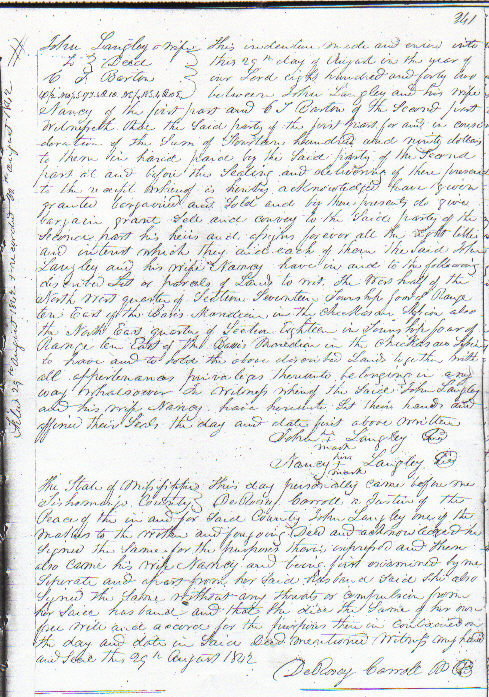 241
John Langley & wife This indenture made and enterd into
To } Deed this 29th day of August in the year of
C T Barton our Lord eight hundred and forty two
between John Langley and his wife
Nancy of the first part and C T Barton of the Second part
Witnesseth that the Said party of the first part for and in consi
deration of the Sum of hundred and ninty dollars
to them in hand paid by the Said party of the Second
part at and before the Sealing and delivering of these presents
to the receipt whereof is hereby acknowledged have given
granted bargained and Sold and by these presents do give
bargain grant Sell and convey to the Said party of the
Second part his heirs and assigns forever all the right title
and interest which they and each of them the Said John
Langley and his wife Nancy have in and to the following
described lot or parcels of Land to wit. The West half of the
North West quarter of Section Seventeen Township four of Range
ten East of the Basis Meredian in the Chickasaw also
the North East quarter of Section Eighteen in Township four of
Range ten East of the Basis Meredian in the Chickasaw
to have and to hold the above described Lands together with
all appertenances privaleges thereunto belonging in any
way Whatsoever In Witness whereof the Said John Langley
and his wife Nancy have hereunto Set their hands and
affixed their Seals the day and date first above written
John + Langley
mark
her
Nancy + Langley
mark
The State of Mississippi } This day personally came before me
Tishomingo County } DeRosey Carroll a Justice of the
Peace of the in and for Said County John Langley one of the
makers to the within and forgoing Deed and acknowledged he
Signed the Same for the purposes therein expressed and there
also came his wife Nancy and being first examined by me
Seperate and apart from her Said husband Said She also
Signed the Same without any threats or compulsion from
her Said husband and that She did the Same of her own
free will and accord for the purposes therein contained on
the day and date in Said Deed mentioned Witness my hand
and Seal this 29th August 1842
DeRosey Carroll JP
Filed 29th August 1842 & recorded August 1842